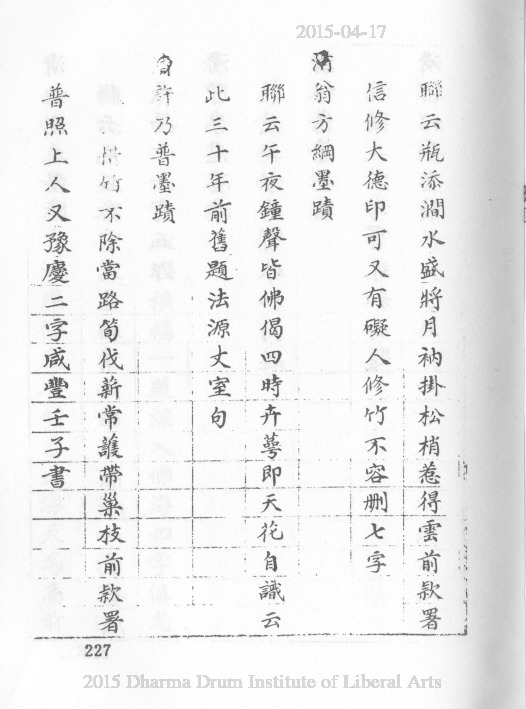 2015-04-17
聯云瓶添澗水盛將月衲掛松梢惹得雲前款署
信修大德印可又有礙人修竹不容刪七字
清翁方綱墨蹟
聯云午夜鐘聲皆佛偈四時卉萼即天花自識云
此三十年前舊題法源丈室句
許乃普墨蹟
惜竹不除當路筍伐薪常護帶巢枝前款署
普照上人又豫慶二字咸豐壬子書
227
2015 Dharma Drum Institute of Liberal Arts